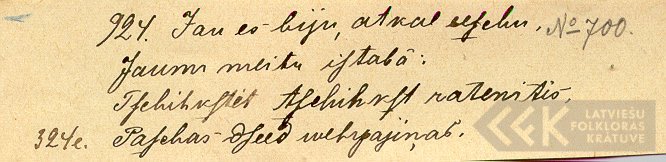 924. Jau es biju, atkal eeſchu, № 700.
Jaunu meitu iſtabā:
Tſchihkſtēt tſchihkſt ratenitis,
324e. Paſchas dſeed wehrpajiņas.
LATVIEŠU
FOLKLORAS
KRĀTUVE